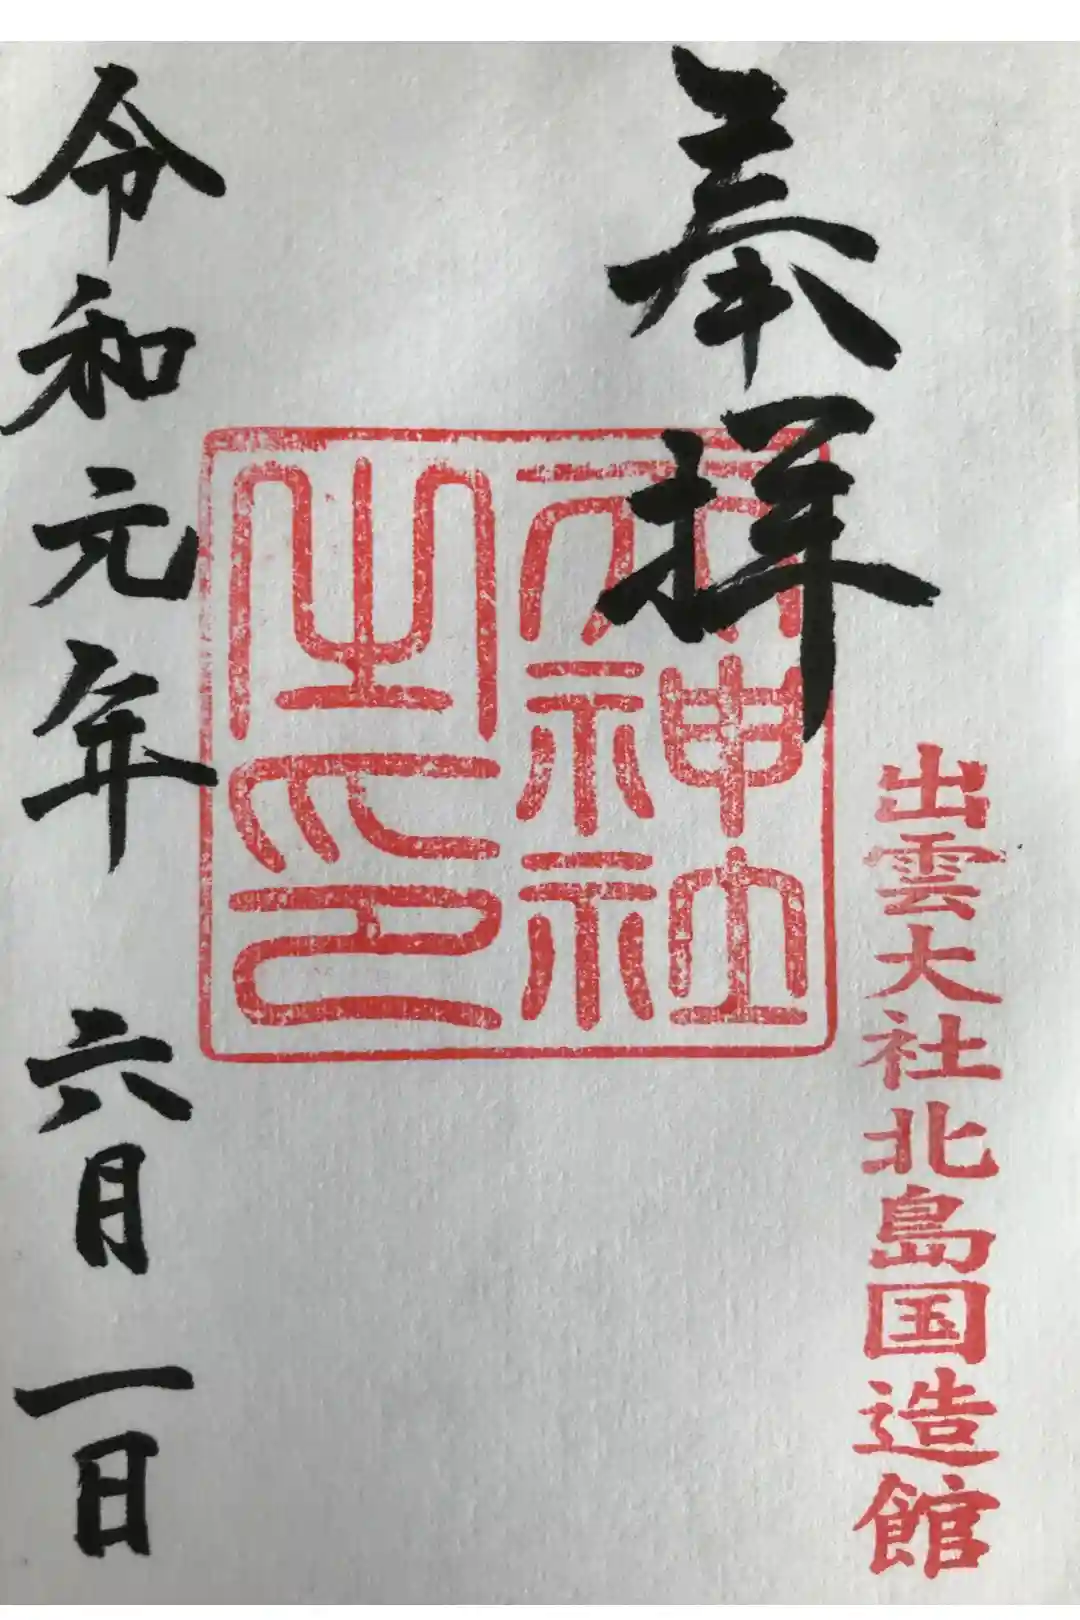 奉拝
出雲大社北島国造館
天神社
之印
令和元年 六月一日